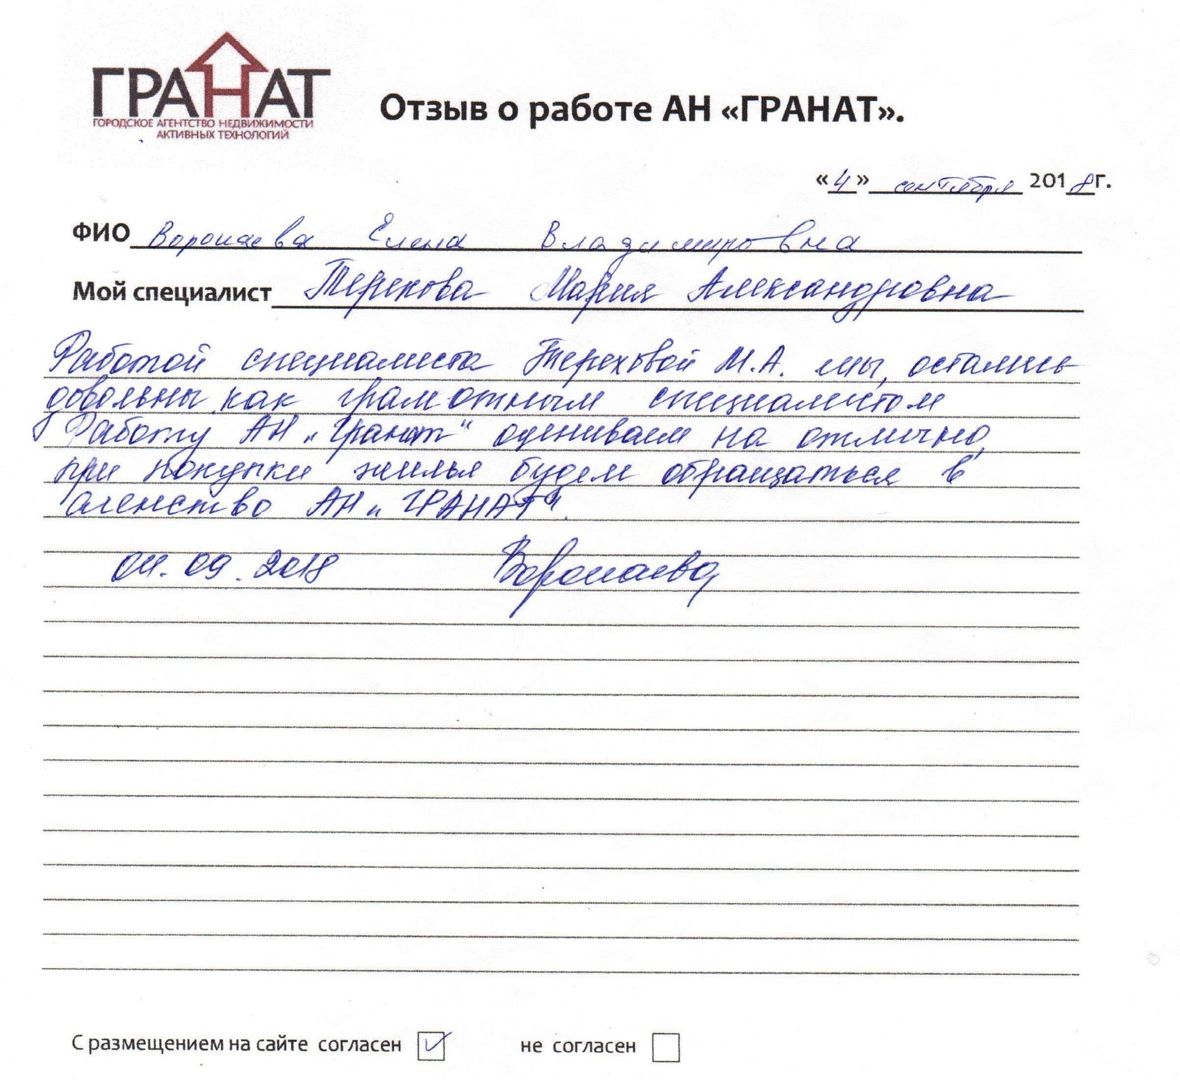 ГРАНАТ
ГОРОДСКОЕ АГЕНТСТВО НЕДВИЖИМОСТИ
АКТИВНЫХ ТЕХНОЛОГИЙ
Отзыв о работе АН «ГРАНАТ».
«4» сентября 2018г.
ФИО Воропаева Елена Владимировна
Мой специалист Терехова Мария Александровна
Работой специалиста Тереховой М.А. мы, остались
довольны, как грамотным специалистом
Работу АН „Гранат" оцениваем на отлично,
при покупки жилья будем обращаться в
агенство АН „ГРАНАТ".
04.09.2018 Воропаева
С размещением на сайте согласен ✓ не согласен